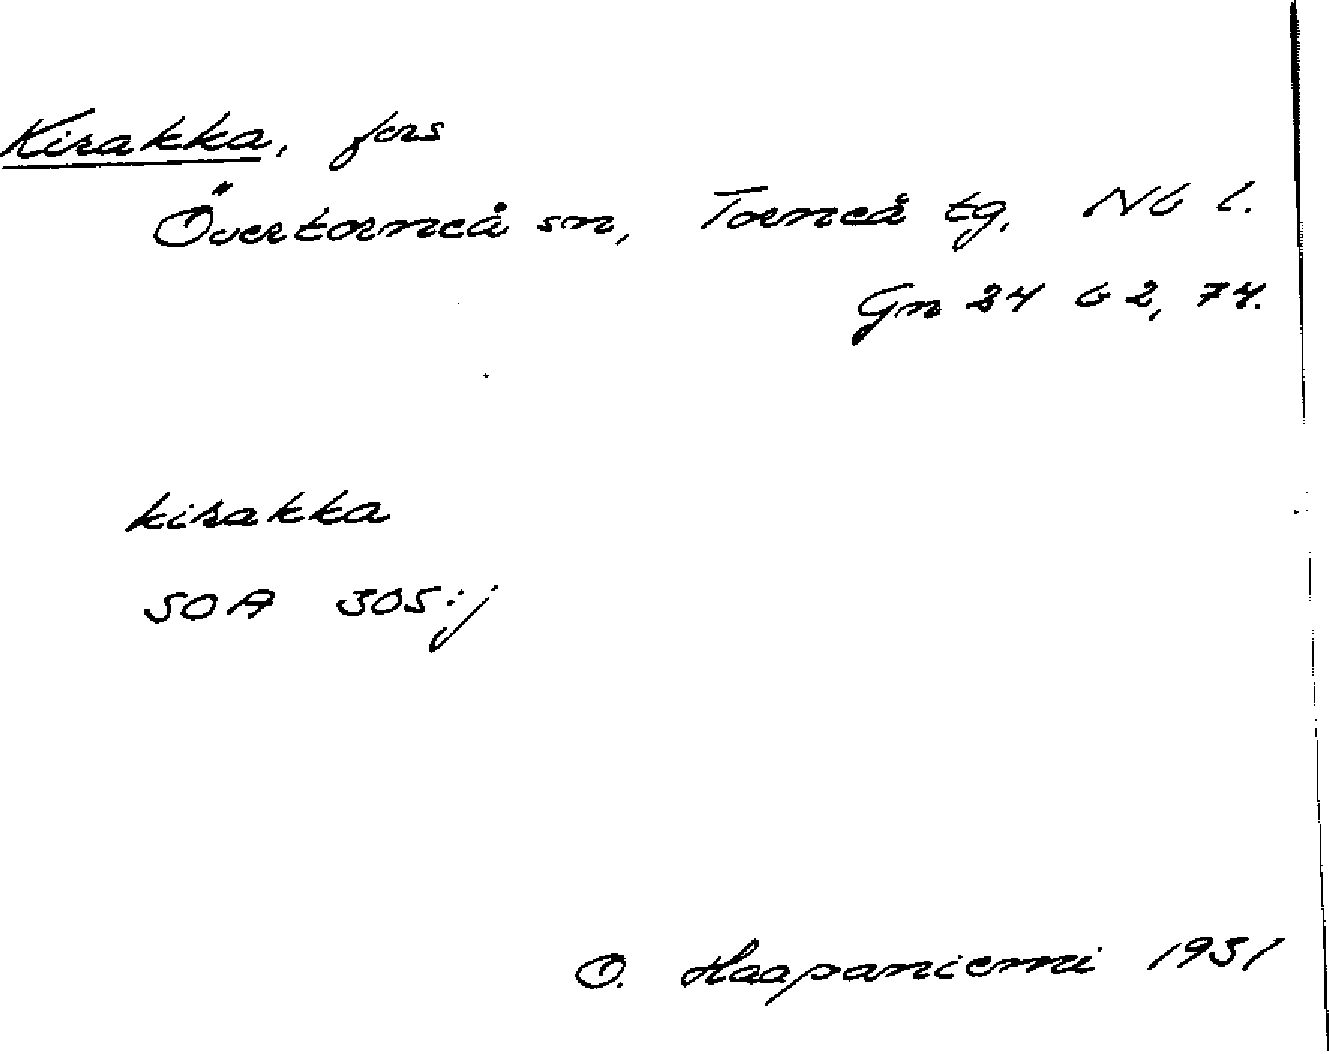 Kirakka, fors
Övertorneå sn, Torneå tg, Nb l.
Gn 24 b 2, 74.
kirakka
SOA 305:j
O. Haapaniemi 1931